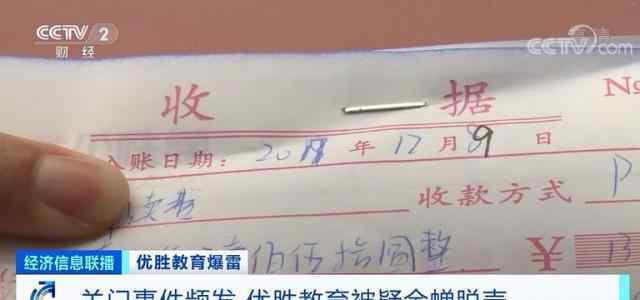 CCTV 2
财经
CCTV.com
收 据
No
入账日期: 201 年 12 月 9 日
收款方式 P
佰伍拾圆整 ¥ 13
经济信息联播 优胜教育爆雷
关门事件频发 优胜教育被疑金蝉脱壳